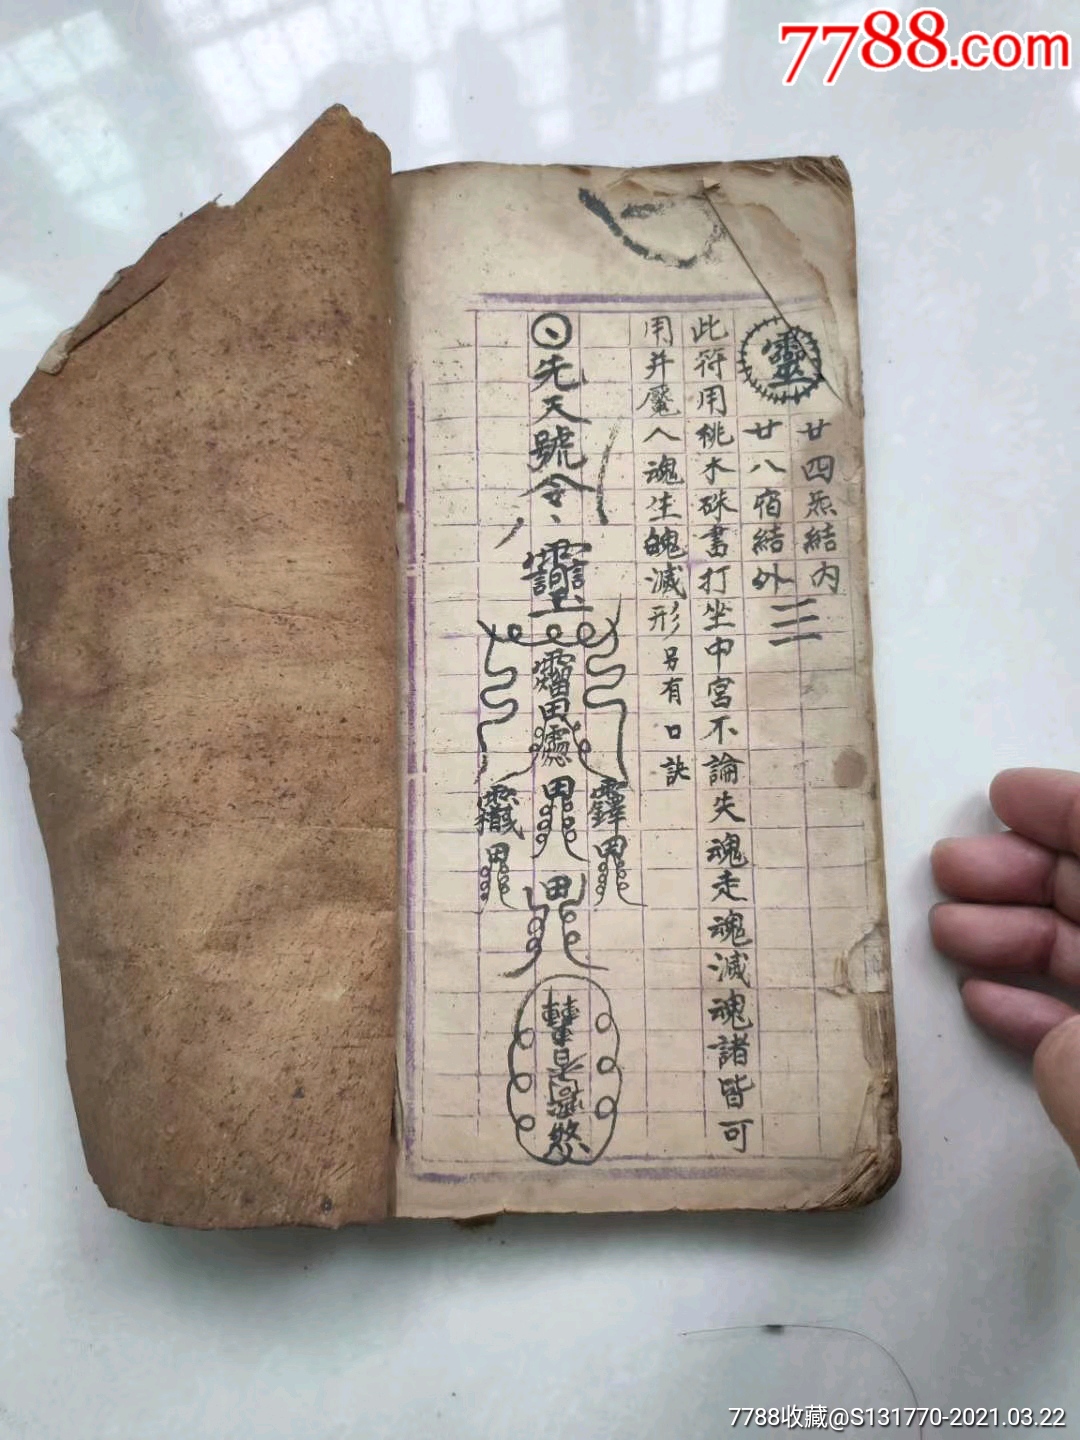 7788.com
靈
廿四炁結內
廿八宿結外
三
此符用桃木硃書打坐中宮不論失魂走魂滅魂諸皆可
用并魘人魂生魄滅形另有口訣
先天號令
是
7788收藏@S131770-2021.03.22